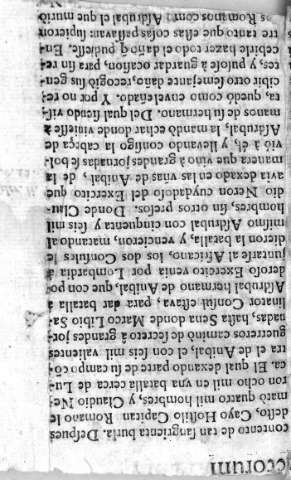 ctorum
contento de tan sangrienta burla. Despues
desto, Cayo Hostilio Capitan Romano le
matò quatro mil hombres, y Claudio Ne-
ron ocho mil en vna batalla cerca de Lu-
ca. El qual dexando parte de su campo cō-
tra el de Anibal, el con seis mil valientes
guerreros caminò de secreto à grandes jor-
nadas, hasta Sena donde Marco Libio Sa-
linator Consul estava, para dar batalla à
Asdrubal hermano de Anibal, que con po-
deroso Exercito venia por Lombardia à
juntarse al Africano, los dos Consules le
dieron la batalla, y vencieron, matando al
mismo Asdrubal con cinquenta y seis mil
hombres, sin otros presos. Donde Clau-
dio Neron cuydadoso del Exercito que
avia dexado en las vñas de Anibal, de la
manera que vino à grandes jornadas se bol-
viò à èl, y llevando consigo la cabeça de
Asdrubal, la mandò echar donde viniesse à
manos de su hermano. Del qual siendo vis-
ta, quedò como envelesado. Y por no re-
cibir otro semejante daño, recogiò sus gen-
tes, y pusose à guardar ocasion, para sin re-
cebirle hazer todo el daño q̃ pudiesse. En-
tre tanto que estas cosas passavan: supieron
los Romanos como Asdrubal el que muriò